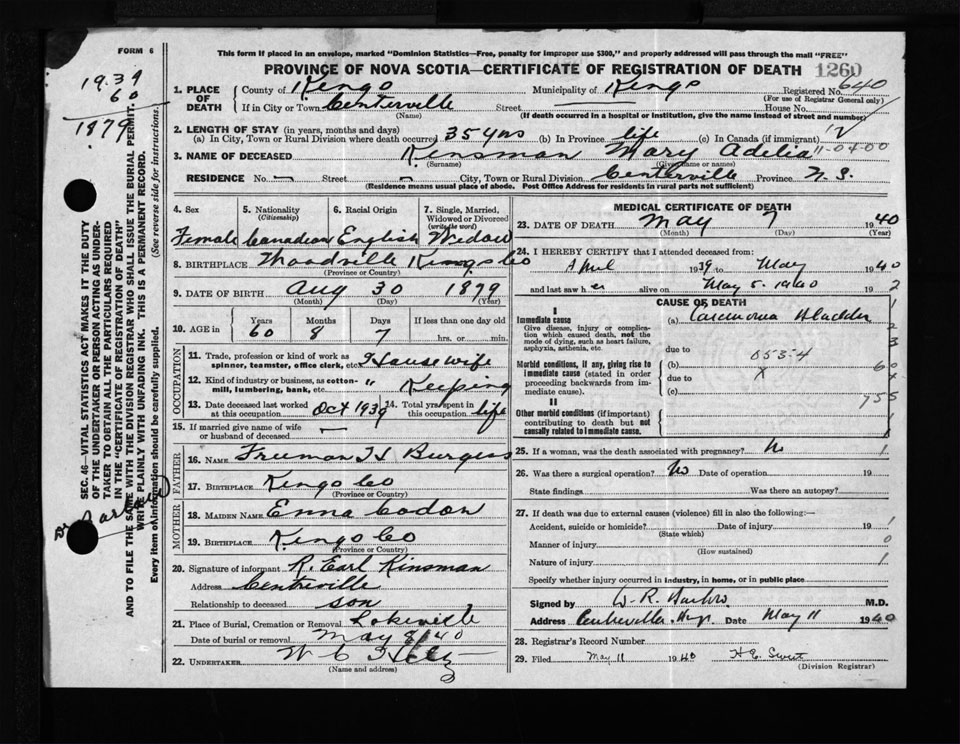 FORM 6
This form if placed in an envelope, marked "Dominion Statistics—Free, penalty for improper use $300," and properly addressed will pass through the mail "FREE"
PROVINCE OF NOVA SCOTIA—CERTIFICATE OF REGISTRATION OF DEATH 1260
1939
60
1879
1. PLACE OF DEATH County of Kings Municipality of Kings Registered No. 640
(For use of Registrar General only)
If in City or Town Centerville Street House No.
(Name) (If death occurred in a hospital or institution, give the name instead of street and number)
2. LENGTH OF STAY (in years, months and days)
(a) In City, Town or Rural Division where death occurred 35 yrs (b) In Province life (c) In Canada (if immigrant)
3. NAME OF DECEASED Kinsman Mary Adelia
(Surname) (Given name or names)
RESIDENCE No. — Street — City, Town or Rural Division Centerville Province N.S.
(Residence means usual place of abode. Post Office Address for residents in rural parts not sufficient)
4. Sex Female
5. Nationality (Citizenship) Canadian
6. Racial Origin English
7. Single, Married, Widowed or Divorced (write the word) Widow
8. BIRTHPLACE Woodville Kings Co
(Province or Country)
9. DATE OF BIRTH Aug 30 1879
(Month) (Day) (Year)
10. AGE in Years 60 Months 8 Days 7 If less than one day old hrs. or min.
OCCUPATION
11. Trade, profession or kind of work as spinner, teamster, office clerk, etc. Housewife
12. Kind of industry or business, as cotton-mill, lumbering, bank, etc. " Keeping
13. Date deceased last worked at this occupation Oct 1939 14. Total yrs. spent in this occupation life
15. If married give name of wife or husband of deceased —
FATHER
16. NAME Freeman H Burgess
17. BIRTHPLACE Kings Co
(Province or Country)
MOTHER
18. MAIDEN NAME Emma Codon
19. BIRTHPLACE Kings Co
(Province or Country)
20. Signature of informant R. Earl Kinsman
Address Centreville
Relationship to deceased son
21. Place of Burial, Cremation or Removal Lakeville
Date of burial or removal May 8/40
22. UNDERTAKER W C
(Name and address)
MEDICAL CERTIFICATE OF DEATH
23. DATE OF DEATH May 7 1940
(Month) (Day) (Year)
24. I HEREBY CERTIFY that I attended deceased from:
April 1939 to May 1940
and last saw her alive on May 5. 1940 19
CAUSE OF DEATH
I
Immediate cause (a) Carcinoma Bladder
Give disease, injury or complication which caused death, not the mode of dying, such as heart failure, asphyxia, asthenia, etc.
due to
0534
Morbid conditions, if any, giving rise to immediate cause (stated in order proceeding backwards from immediate cause).
(b)
due to X
(c)
II
Other morbid conditions (if important) contributing to death but not causally related to immediate cause.
25. If a woman, was the death associated with pregnancy? No
26. Was there a surgical operation? No Date of operation 19
State findings Was there an autopsy?
27. If death was due to external causes (violence) fill in also the following:—
Accident, suicide or homicide? Date of injury 19
(State which)
Manner of injury
(How sustained)
Nature of injury
Specify whether injury occurred in industry, in home, or in public place
Signed by M.D.
Address Centreville Date May 11 1940
28. Registrar's Record Number
29. Filed May 11 1940 H E Sweet
(Division Registrar)
SEC. 46—VITAL STATISTICS ACT MAKES IT THE DUTY OF THE UNDERTAKER OR PERSON ACTING AS UNDERTAKER TO OBTAIN ALL THE PARTICULARS REQUIRED IN THE "CERTIFICATE OF REGISTRATION OF DEATH" AND TO FILE THE SAME WITH THE DIVISION REGISTRAR WHO SHALL ISSUE THE BURIAL PERMIT.
WRITE PLAINLY WITH UNFADING INK. THIS IS A PERMANENT RECORD.
Every item of information should be carefully supplied. (See reverse side for instructions.)